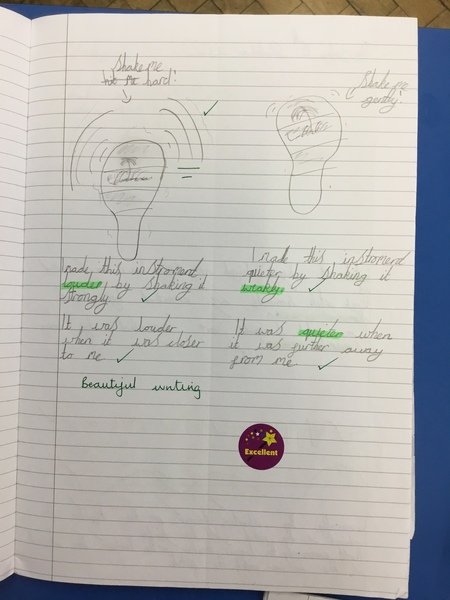 Shake me
hit me hard!
Shake me
gently!
I made this instroment
louder by shaking it
strongly
It was louder
when it was closer
to me
Beautiful writing
I made this instroment
quieter by shaking it
weakly
It was quieter when
it was further away
from me
Excellent